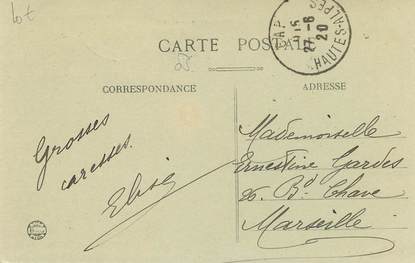 lot
CARTE POSTALE
GAP
27-6
20
HAUTES-ALPES
CORRESPONDANCE
ADRESSE
Grosses
caresses.
Elise
Mademoiselle
Ernestine Gardes
26. Bd Chave
Marseille